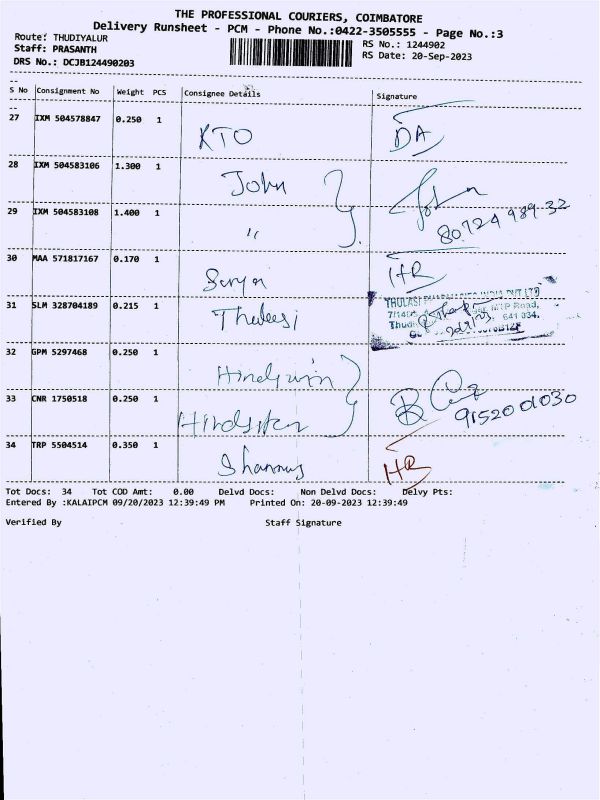 THE PROFESSIONAL COURIERS, COIMBATORE
Delivery Runsheet - PCM - Phone No.:0422-3505555 - Page No.:3
Route: THUDIYALUR
RS No.: 1244902
Staff: PRASANTH
RS Date: 20-Sep-2023
DRS No.: DCJB124490203
S No Consignment No Weight PCS Consignee Details Signature
27 IXM 504578847 0.250 1 KTO DA
28 IXM 504583106 1.300 1 John John
29 IXM 504583108 1.400 1 " 80724 989 32
30 MAA 571817167 0.170 1 Surya HR
31 SLM 328704189 0.215 1 Thulasi
THULASI PHARMACIES INDIA PVT LTD
MTP Road,
641 034.
32 GPM 5297468 0.250 1
33 CNR 1750518 0.250 1 9152001030
34 TRP 5504514 0.350 1 HR
Tot Docs: 34 Tot COD Amt: 0.00 Delvd Docs: Non Delvd Docs: Delvy Pts:
Entered By :KALAIPCM 09/20/2023 12:39:49 PM Printed On: 20-09-2023 12:39:49
Verified By Staff Signature